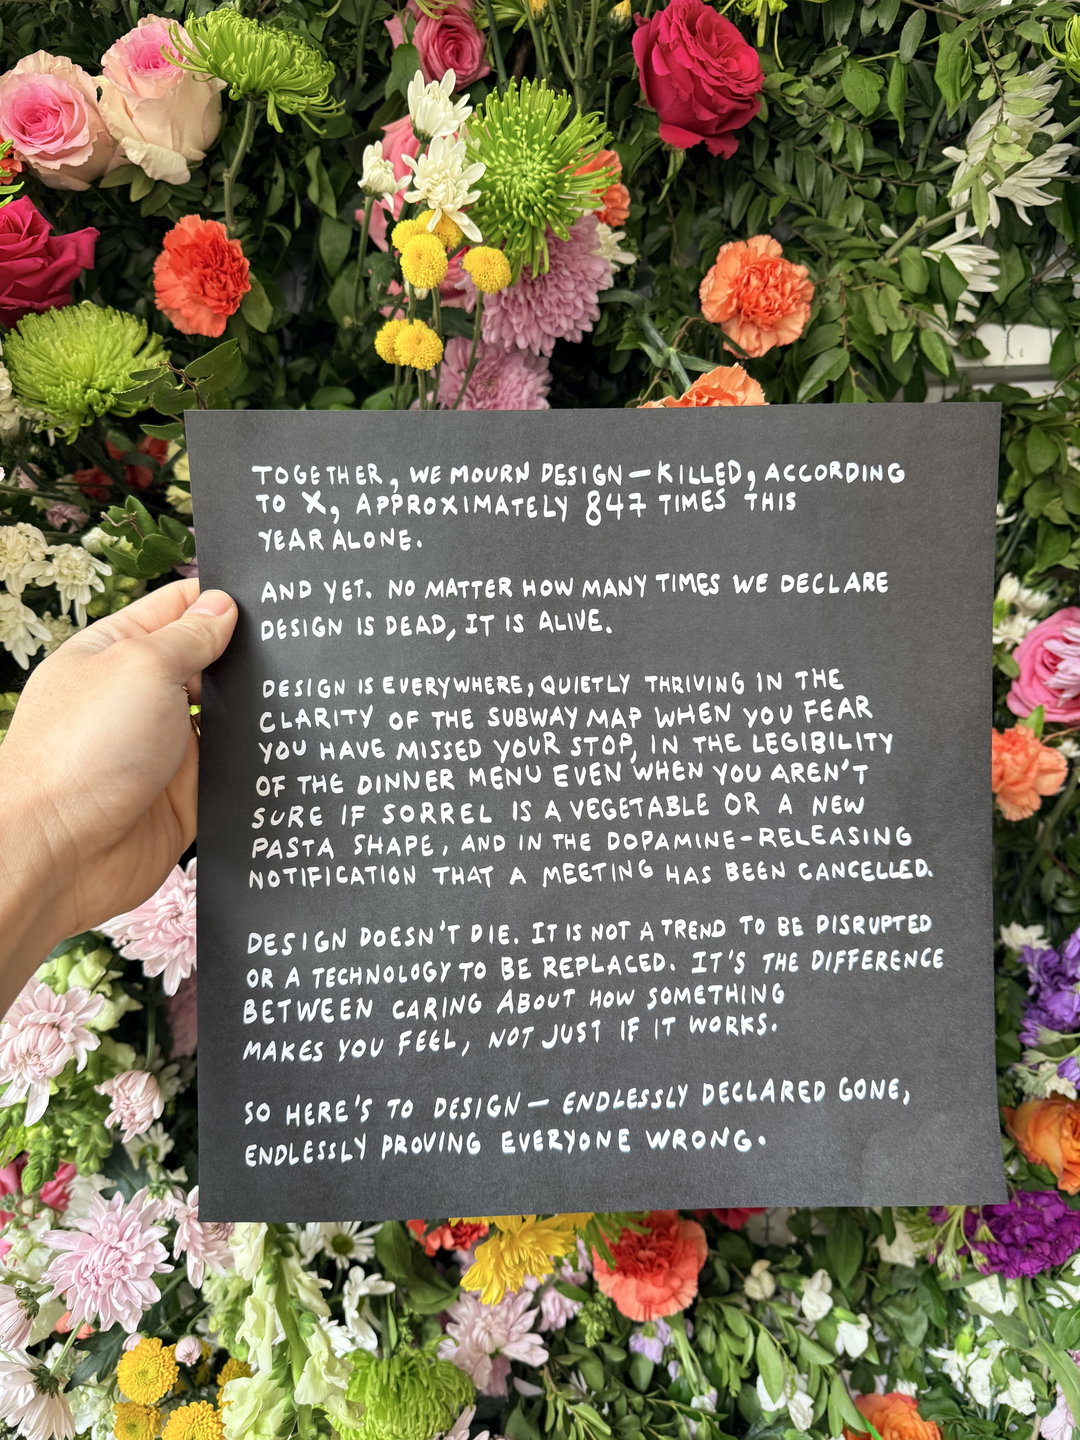 TOGETHER, WE MOURN DESIGN — KILLED, ACCORDING
TO X, APPROXIMATELY 847 TIMES THIS
YEAR ALONE.
AND YET. NO MATTER HOW MANY TIMES WE DECLARE
DESIGN IS DEAD, IT IS ALIVE.
DESIGN IS EVERYWHERE, QUIETLY THRIVING IN THE
CLARITY OF THE SUBWAY MAP WHEN YOU FEAR
YOU HAVE MISSED YOUR STOP, IN THE LEGIBILITY
OF THE DINNER MENU EVEN WHEN YOU AREN'T
SURE IF SORREL IS A VEGETABLE OR A NEW
PASTA SHAPE, AND IN THE DOPAMINE-RELEASING
NOTIFICATION THAT A MEETING HAS BEEN CANCELLED.
DESIGN DOESN'T DIE. IT IS NOT A TREND TO BE DISRUPTED
OR A TECHNOLOGY TO BE REPLACED. IT'S THE DIFFERENCE
BETWEEN CARING ABOUT HOW SOMETHING
MAKES YOU FEEL, NOT JUST IF IT WORKS.
SO HERE'S TO DESIGN — ENDLESSLY DECLARED GONE,
ENDLESSLY PROVING EVERYONE WRONG.